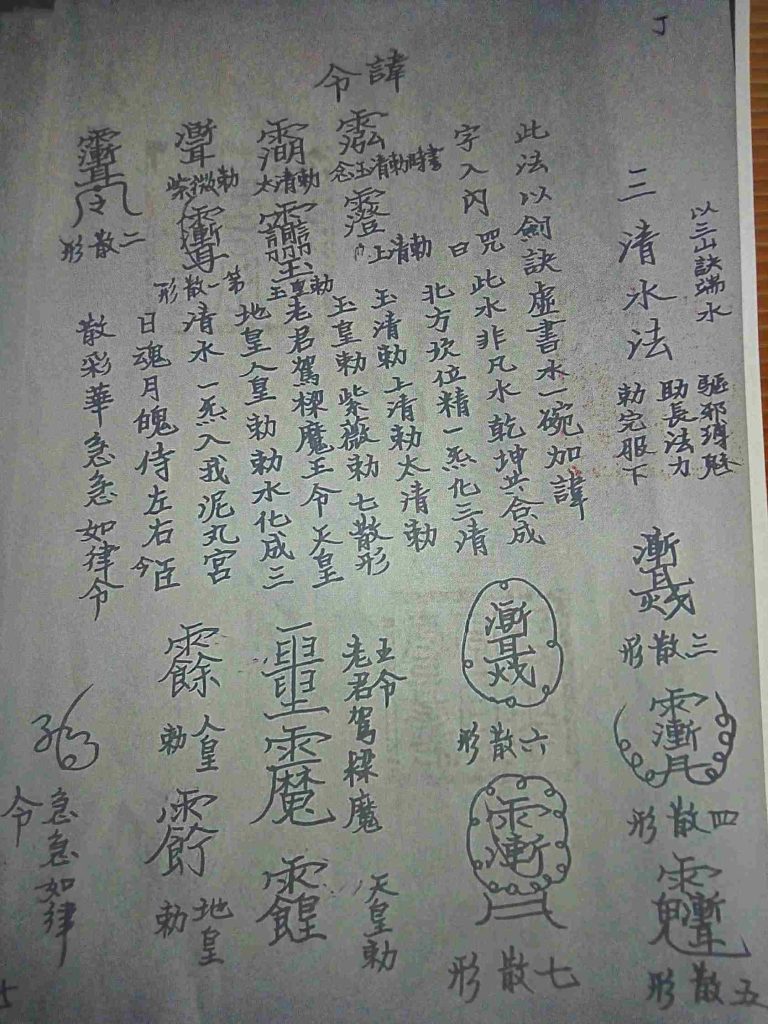 以三山訣端水
三清水法
驅邪
助長法力
勅完服下
三散形
四散形
五散形
此法以劍訣虛書水一碗加諱
字入內 咒曰 此水非凡水乾坤共合成
北方坎位精一炁化三清
玉清勅上清勅太清勅
玉皇勅紫薇勅七散形
老君駕樑魔王令天皇
地皇人皇勅勅水化成三
清水一炁入我泥丸宮
日魂月魄侍左右今臣
散彩華急急如律令
六散形
七散形
諱令
念玉清勅時書
上清勅
太清勅
玉皇勅
紫微勅
第一散形
二散形
老君駕樑魔
王令
天皇勅
人皇勅
地皇勅
急急如律
令